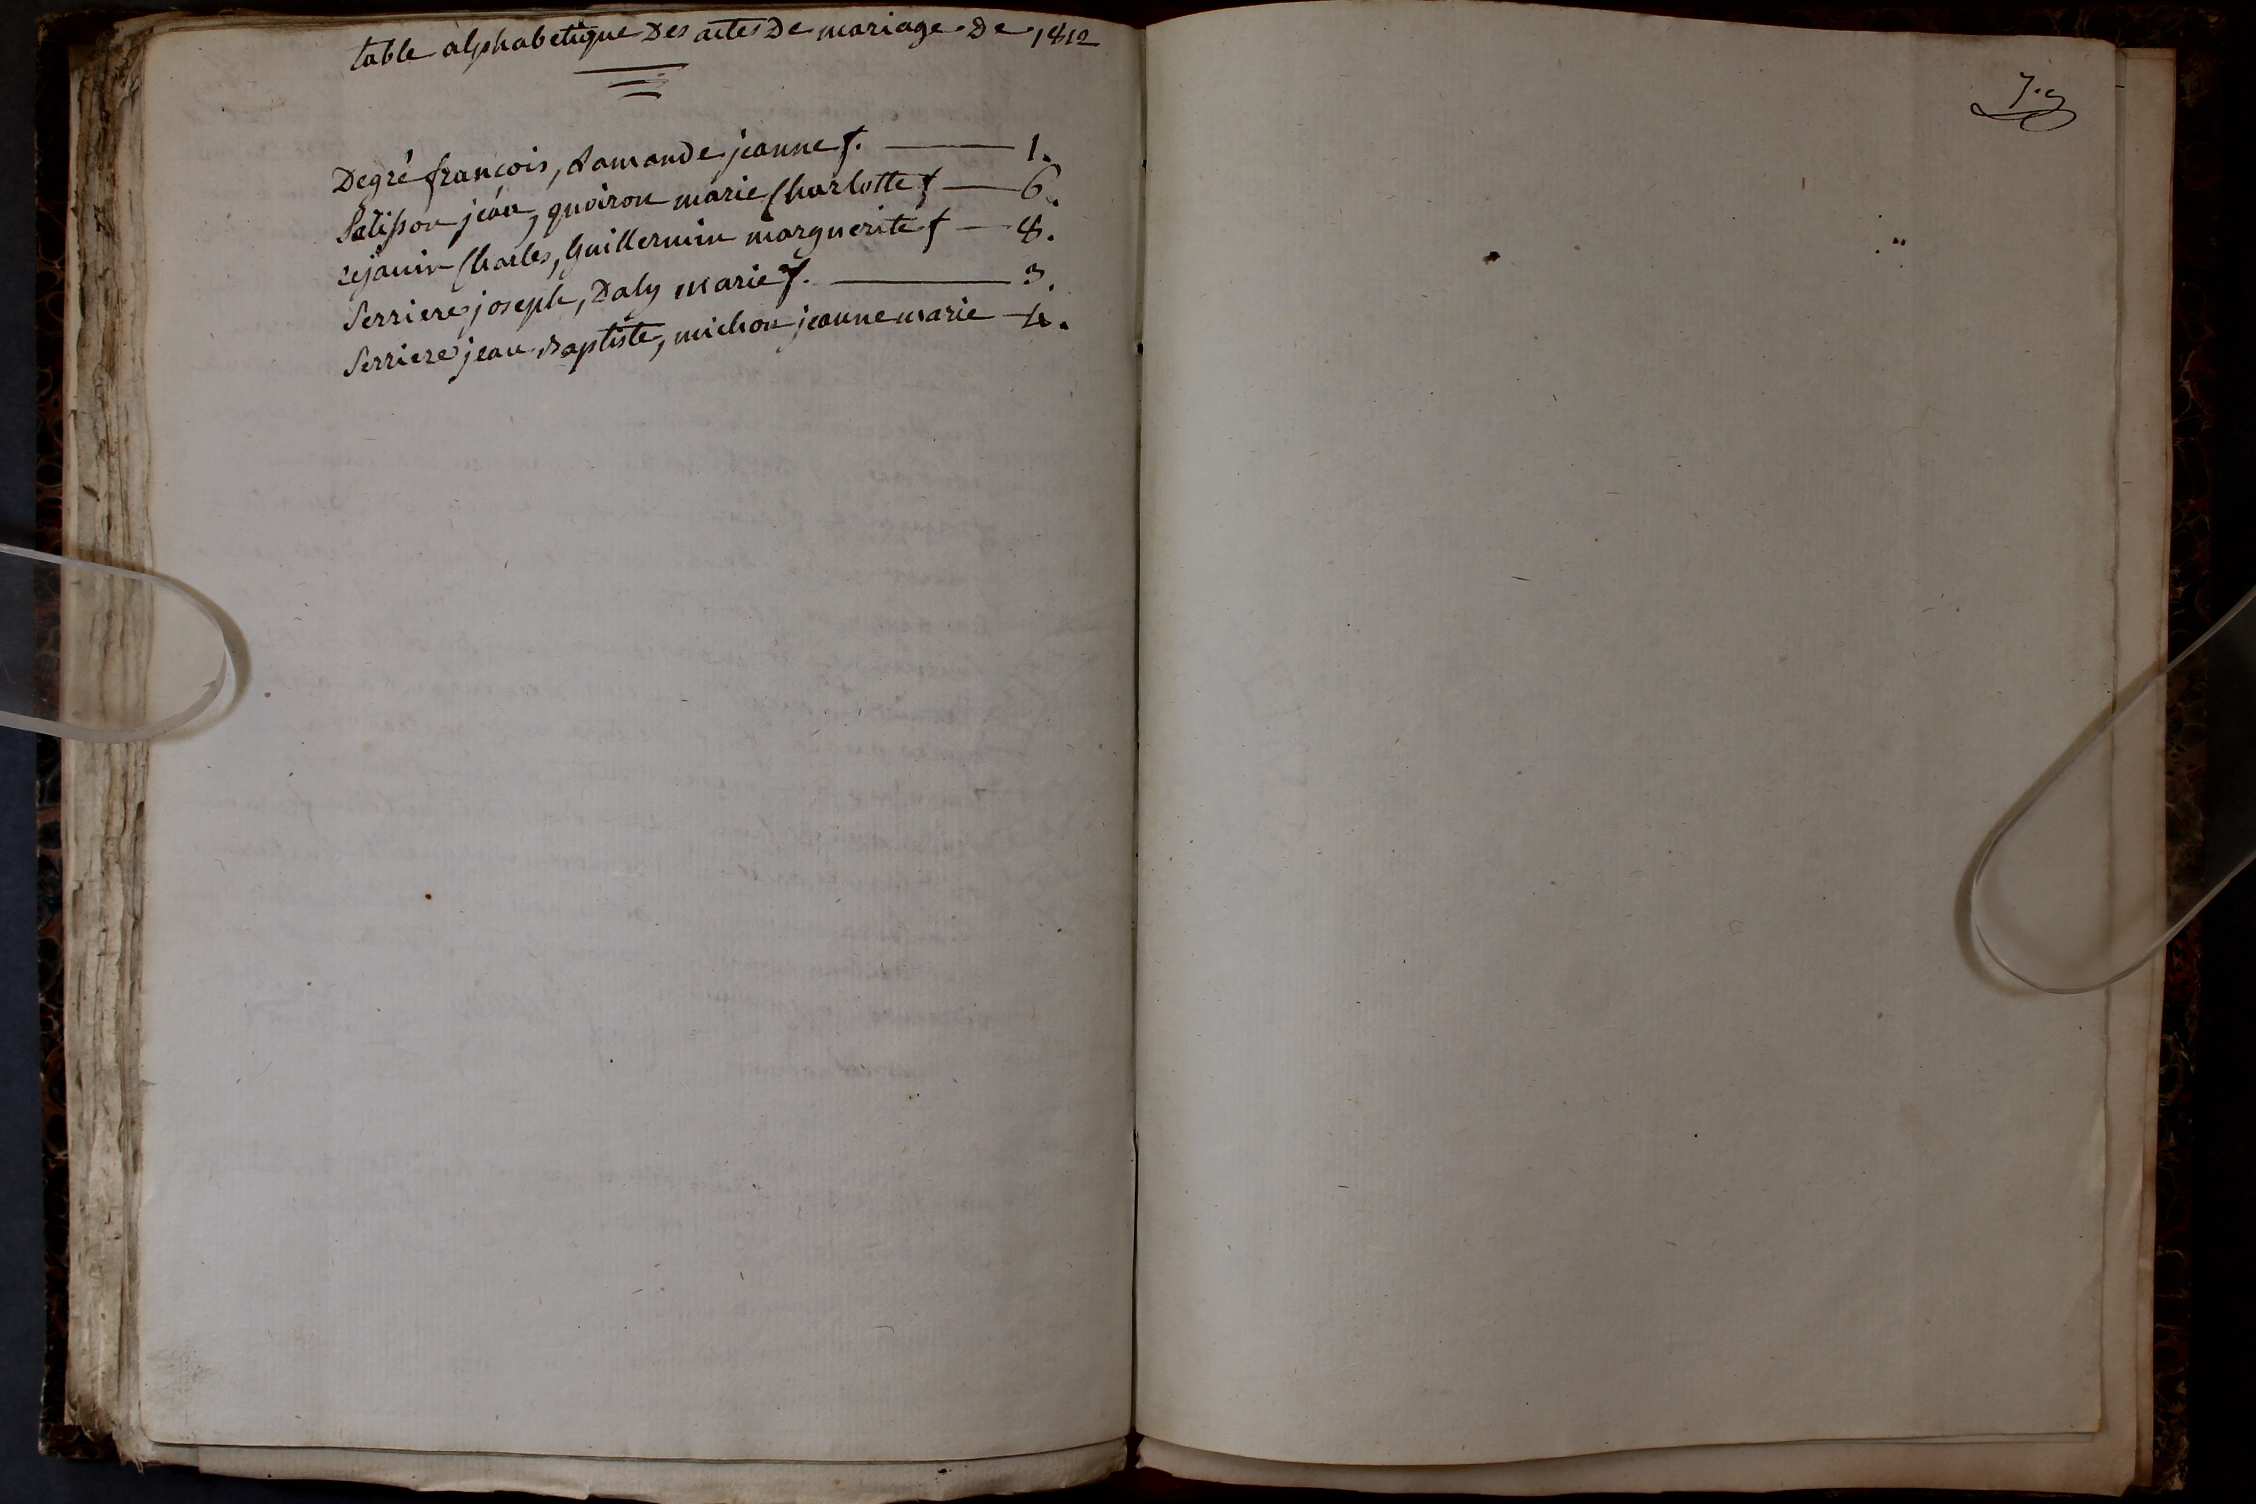 table alphabetique Des actes De mariage De 1812
Degré françois, Lamande jeanne f. — 1.
Patisson jean, quoiron marie Charlotte f — 6.
rejanin Charles, Guillermin marguerite f — 8.
Serriere joseph, Daly marie f. — 3.
Serriere jean Baptiste, michon jeanne marie — 4.